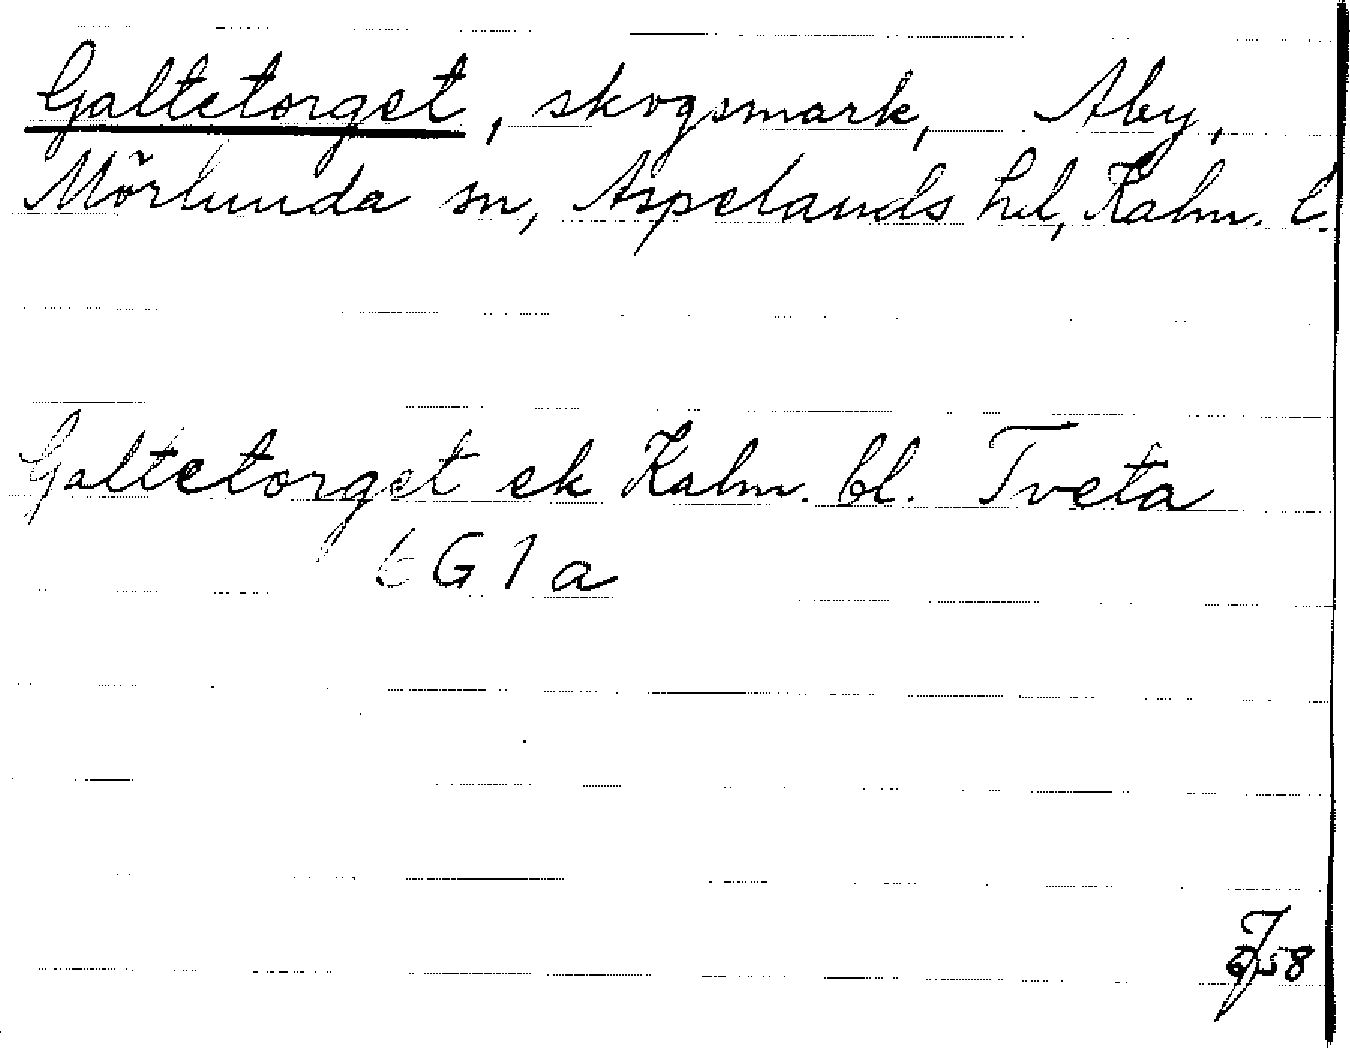 Galtetorget, skogsmark, Åby,
Mörlunda sn, Aspelands hd, Kalm. l.
Galtetorget ek Kalm. bl. Tveta
6 G 1 a
58